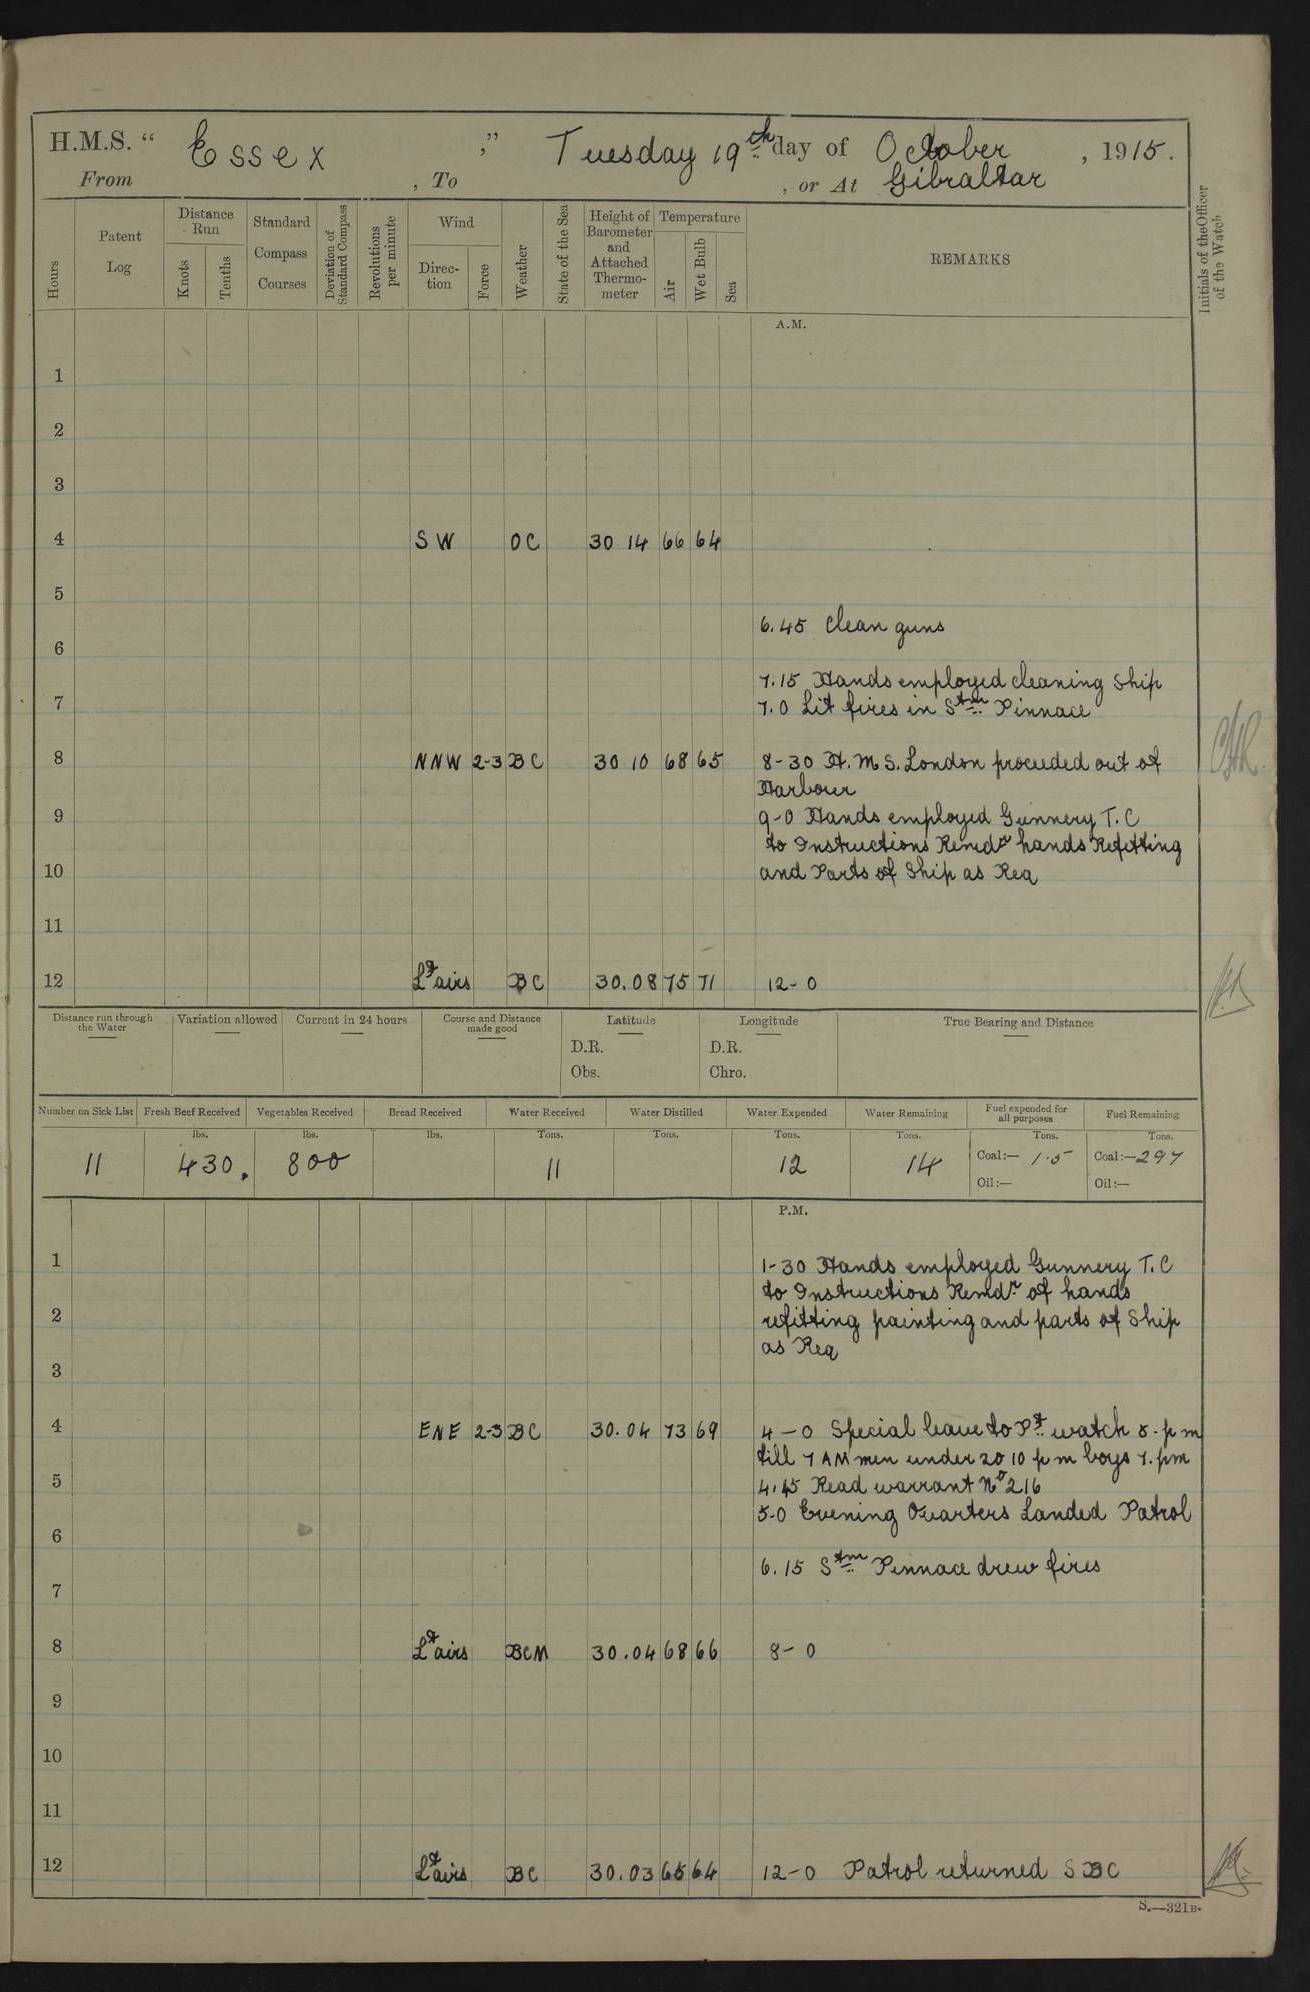 H.M.S. “ Essex ,” Tuesday 19th day of October , 1915.
From , To , or At Gibraltar
Hours
Patent Log
Distance Run
Knots
Tenths
Standard Compass Courses
Deviation of Standard Compass
Revolutions per minute
Wind
Direction
Force
Weather
State of the Sea
Height of Barometer and Attached Thermometer
Temperature
Air
Wet Bulb
Sea
REMARKS
Initials of the Officer of the Watch
A.M.
1
2
3
4 SW OC 30 14 66 64
5
6.45 Clean guns
6
7.15 Hands employed cleaning Ship
7 7.0 Lit fires in Stm Pinnace
8 NNW 2-3 BC 30 10 68 65 8-30 H.M.S. London proceeded out of
Harbour
9 9-0 Hands employed Gunnery T.C
to Instructions Remdr hands Refitting
10 and Parts of Ship as Req
11
12 Lt airs BC 30.08 75 71 12-0
Distance run through the Water
Variation allowed
Current in 24 hours
Course and Distance made good
Latitude
D.R.
Obs.
Longitude
D.R.
Chro.
True Bearing and Distance
Number on Sick List Fresh Beef Received Vegetables Received Bread Received Water Received Water Distilled Water Expended Water Remaining Fuel expended for all purposes Fuel Remaining
lbs. lbs. lbs. Tons. Tons. Tons. Tons. Tons. Tons.
11 430. 800 11 12 14 Coal:— 1.5 Coal:—297
Oil:— Oil:—
P.M.
1 1-30 Hands employed Gunnery T.C
to Instructions Remdr of hands
2 refitting painting and parts of Ship
as Req
3
4 ENE 2-3 BC 30.04 73 69 4-0 Special leave to Pt watch 5.pm
till 7 AM men under 20 10 pm boys 7.pm
5 4.45 Read warrant No 216
5-0 Evening Quarters Landed Patrol
6
6.15 Stm Pinnace drew fires
7
8 Lt airs BCM 30.04 68 66 8-0
9
10
11
12 Lt airs BC 30.03 65 64 12-0 Patrol returned SBC
S.—321B.